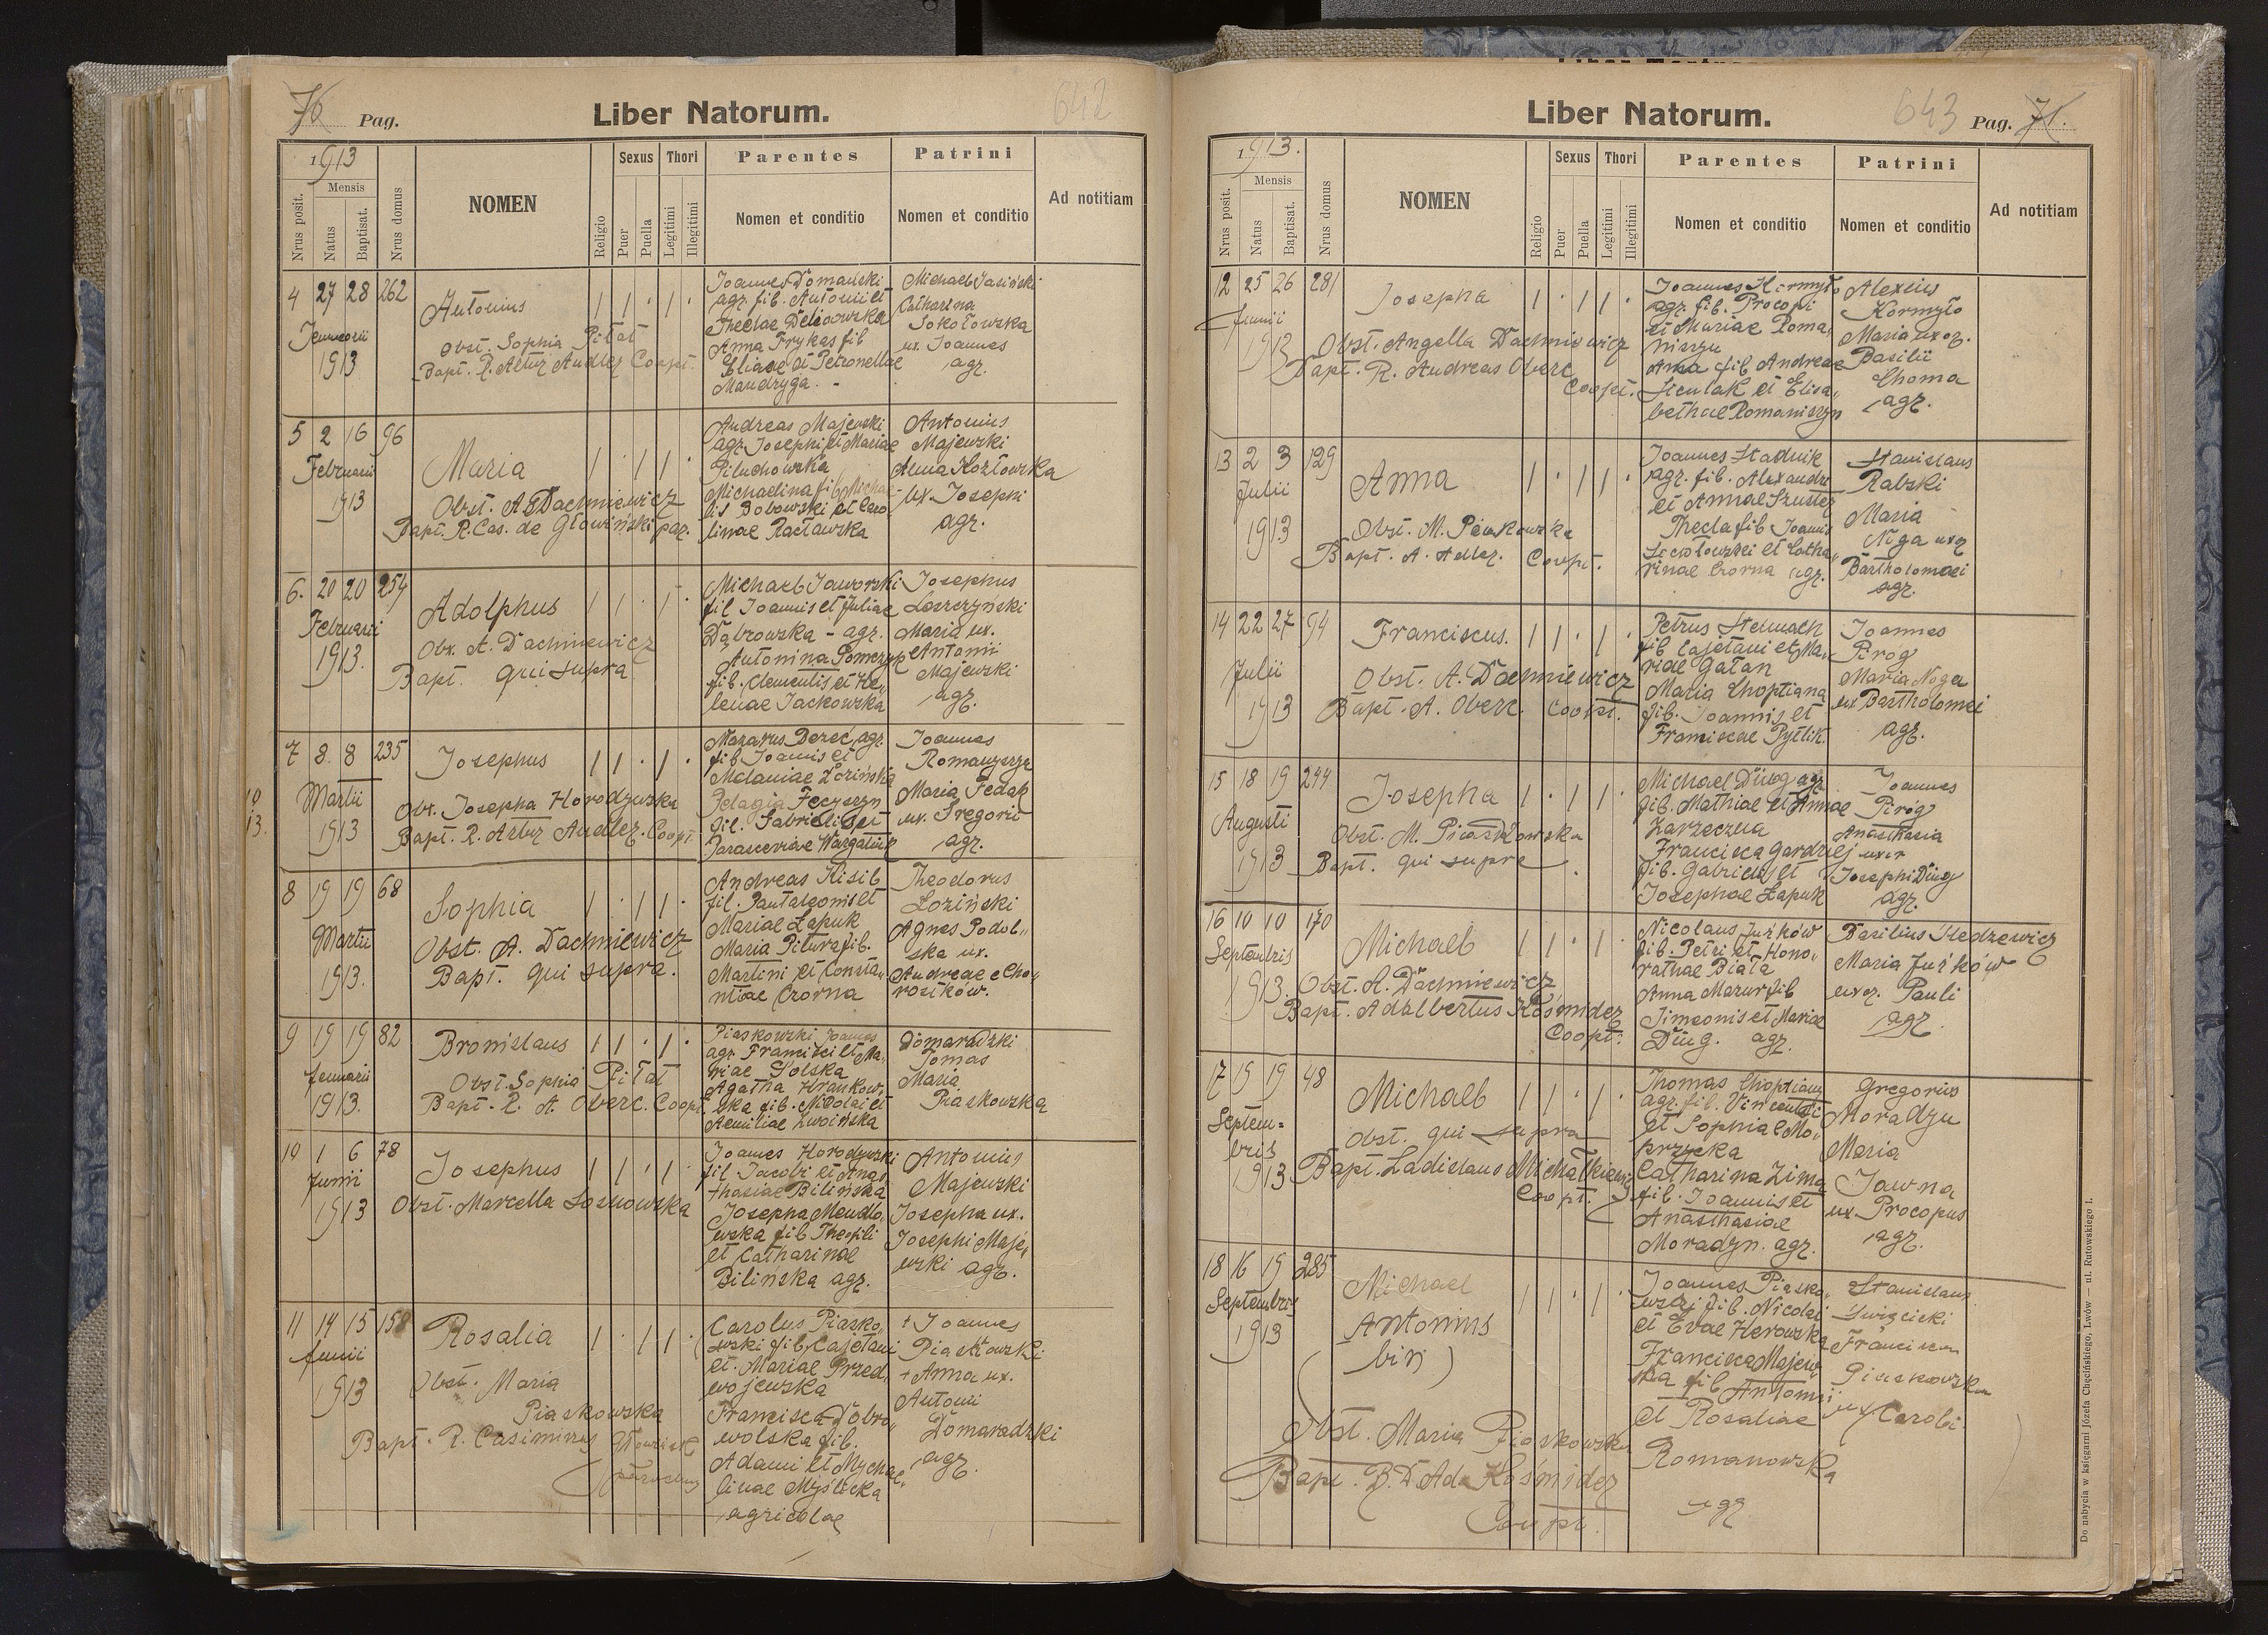 76 Pag.
Liber Natorum.
642
1913
Nrus posit.
Mensis
Natus
Baptisat.
Nrus domus
NOMEN
Religio
Sexus
Puer
Puella
Thori
Legitimi
Illegitimi
Parentes
Nomen et conditio
Patrini
Nomen et conditio
Ad notitiam
4 27 28 262
Januarii
1913
Antonius
Obst. Sophia Piłat
Bapt. R. Artur Audlez Coopt.
Joannes Domański
agr. fil. Antonii et
Theclae
Anna Prykas fil
Eliae et Petronellae
Mandryga. -
Michael Jasiński
Catharina
Sokołowska
ux. Joannes
agr.
5 2 16 96
Februarii
1913
Maria
Obst. A Dachniewicz
Bapt. R. Cas. de Głowiński par.
Andreas Majewski
agr. Josephi et Mariae
Piluchowska
Michaelina fil Micha-
lis Bobowski et Caro-
linae Racławska
Antonius
Majewski
Anna Kozłowska
ux. Josephi
agr.
6. 20 20 254
Februarii
1913.
Adolphus
Obs. A. Dachniewicz
Bapt. qui supra
Michael Jaworski
fil Joannis et Juliae
Dąbrowska - agr.
Antonina Pomczyk
fil. Clementis et He-
lenae Jackowska
Josephus
Loszczyński
Maria ux.
Antonii
Majewski
agr.
7 8. 8 235
Martii
1913
10
13.
Josephus
Obs. Josepha Horodyuska
Bapt. R. Artur Audlez. Coopt.
Nazarus Berec agr.
fil Joannis et
Melaniae Łozińska
Pelagia Fecyszyn
fil. Gabrielis et
Parasceviae
Joannes
Romanyszyn
Maria Fedak
ux. Gregorii
agr.
8 19 19 68
Martii
1913.
Sophia
Obst. A. Dachniewicz
Bapt. qui supra.
Andreas Kisil
fil. Pantaleonis et
Mariae Łapuk
Maria Pitura fil.
Martini et Consta-
ntiae Czorna
Theodorus
Łoziński
Agnes Podol-
ska ux.
Andreae e Cho-
rostków.
9 19 19 82
Januarii
1913.
Bronislaus
Obst. Sophia Piłat
Bapt. R. A. Oberc. Coopt.
Piaskowski Joannes
agr. Francisci et Ma-
riae Solska
Agatha Hrankow-
ska fil. Nicolai et
Aemiliae Zwoińska
Domaradzki
Tomas
Maria
Piaskowska
10 1 6 78
Junii
1913
Josephus
Obst. Marcella Sosnowska
Joannes Horodyuski
fil Jacobi et Anas-
thasiae Bilińska
Josepha Mendlo-
wska fil Theofili
et Catharinae
Bilińska agr.
Antonius
Majewski
Josepha ux.
Josephi Maje-
wski agr.
11 14 15 158
Junii
1913
Rosalia
Obst. Maria
Piaskowska
Bapt. R. Casimirus
parochus
Carolus Piasko-
wski fil. Cajetani
et. Mariae Przed-
wojewska
Francisca Dobro-
wolska fil.
Adami et Mychae-
linae Myślicka
agricolae
+ Joannes
Piaskowski
+ Anna ux.
Antoni
Domaradzki
agr.
Liber Natorum.
643 Pag. 71.
1913.
Nrus posit.
Mensis
Natus
Baptisat.
Nrus domus
NOMEN
Religio
Sexus
Puer
Puella
Thori
Legitimi
Illegitimi
Parentes
Nomen et conditio
Patrini
Nomen et conditio
Ad notitiam
12 25 26 281
Junii
1913
Josepha
Obst. Angella Dachniewicz
Bapt. R. Andreas Oberc
Coopt.
Joannes Kormyło
agr. fil. Procopi
et Mariae Roma-
niszyn
Anna fil Andreae
Stculak et Elisa-
bethae Romaniszyn
Alexius
Kormyło
Maria uxor.
Basilii
Choma
agr.
13 2 3 129
Julii
1913
Anna
Obst. M. Piaskowska
Bapt. A. Adlez. Coopt.
Joannes Stadnik
agr. fil. Alexandri
et Annae Szuster
Thecla fil Joannis
et Catha-
rinae Czorna agr.
Stanislaus
Rabski
Maria
Noga uxor
Bartholomaei
agr.
14 22 27 94
Julii
1913
Franciscus.
Obst. A. Dachniewicz
Bapt. A. Oberc. Coopt.
Petrus Stelmach
fil Cajetani et Ma-
riae Gałan
Maria Choptiana
fil. Joannis et
Franciscae Pytlik.
Joannes
Pirog
Maria Noga
ux Bartholomei
agr.
15 18 19 244
Augusti
1913
Josepha
Obst. M. Piaskowska
Bapt. qui supra.
Michael Ding agr
fil. Mathiae et Annae
Zarzeczna
Francisca Gardziej
fil. Gabrielis et
Josephae Łapuk
Joannes
Pirog
Anasthasia
uxor
Josephi Ding
agr.
16 10 10 170
Septembris
1913.
Michael
Obst. A. Dachniewicz
Bapt. Adalbertus Kośmider
Coopt.
Nicolaus Juśków
fil. Petri et Hono-
rathae Biała
Anna Mazur fil
Simeonis et Mariae
Ding. agr.
Basilius Sledzewicz
Maria Juśków
uxor. Pauli
agr.
17 15 19 48
Septem-
bris
1913
Michael
Obst. qui supra
Bapt. Ladislaus Michałkiewicz
Coopt.
Thomas Choptiany
agr. fil. Vincentii
et Sophiae Mo-
przycka
Catharina Zima
fil. Joannis et
Anasthasiae
Moradyn. agr.
Gregorius
Moradyn
Maria
Jawna
ux Procopus
agr.
18 16 19 285
Septembris
1913
Michael
Antonius
(bin)
Obst. Maria Piaskowska
Bapt. R. D. Ada Kośmider
Coopt.
Joannes Piasko-
wski fil. Nicolai
et Evae Herowska
Francisca Majew-
ska fil Antonii
et Rosaliae
Romanowska
agr
Stanislaus
Swięcicki
Francisca
Piaskowska
ux Caroli.
Do nabycia w księgarni Józefa Chęcińskiego, Lwów — ul. Rutowskiego 1.